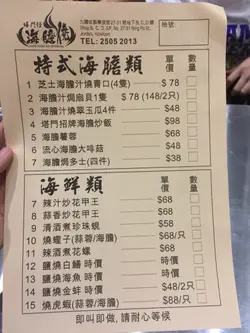 塔門仔
海膽佬
九龍佐敦寧波街27-31號地下B,C,D舖
Shop B, C, D, G/F, No. 27-31 Ning Po St.,
Jordan, Kowloon
TEL: 2505 2013
檯號:
特式海膽類 單價 數量
1 芝士海膽汁燒青口(4隻) $ 78
2 海膽汁焗扇貝1隻 $ 78 (148/2只)
3 海膽汁燒翠玉瓜4件 $68
4 塔門招牌海膽炒飯 $68
5 海膽薯蓉 $68
6 流心海膽大啡菇 $48
7 海膽焗多士(四件) $38
海鮮類 單價 數量
7 辣汁炒花甲王 $68
8 蒜香炒花甲王 $68
9 清酒煮珍珠蜆 $58
10 燒蟶子(蒜蓉/海膽) $68/只
11 辣酒煮花螺 $68
12 鹽燒白鱔 時價
13 鹽燒海魚 時價
14 鹽燒金蚌 時價 $48/2只
15 燒虎蝦(蒜蓉/海膽) $88/只
即叫即做, 請耐心等候